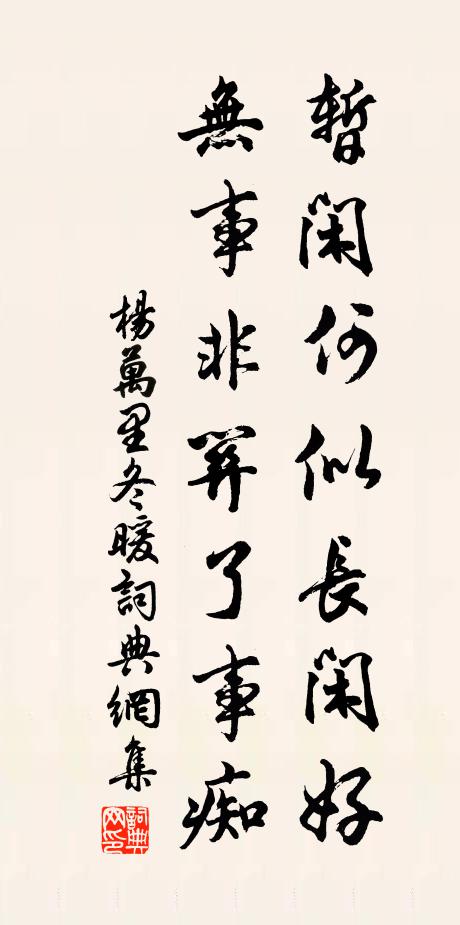 暫閑何似長閑好
無事非關了事痴
楊萬里冬暖詞典網集
詞典
网印